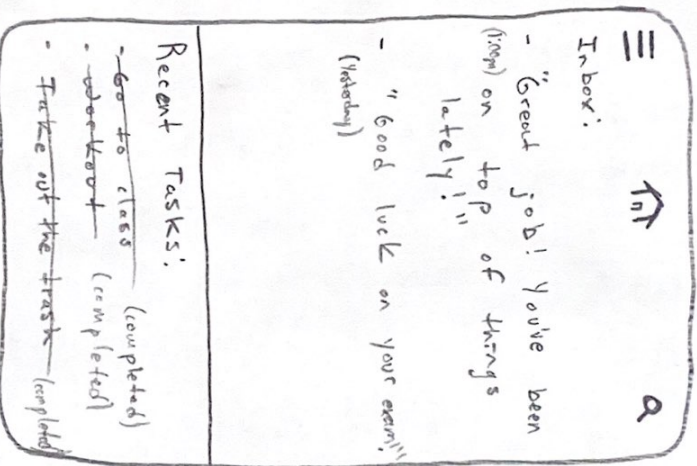 Inbox:
- "Great job! You've been
on top of things
lately!"
- "Good luck on your exam!"
(Yesterday)
Recent Tasks:
- Go to class (completed)
- Workout (completed)
- Take out the trash (completed)